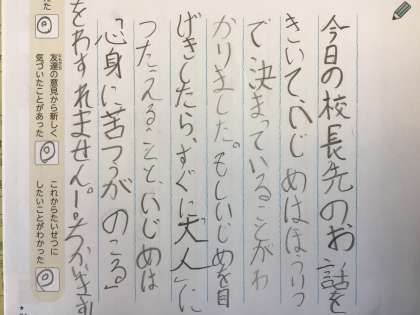 今日の校長先のお話を
きいて、いじめはほうりつ
で決まっていることがわ
かりました。もしいじめを目
げきしたら、すぐに"大人"に
つたえること、いじめは
「心身に苦つうがのこる」
をわすれません!ちかいます
友達の意見から新しく
気づいたことがあった
これからたいせつに
したいことがわかった